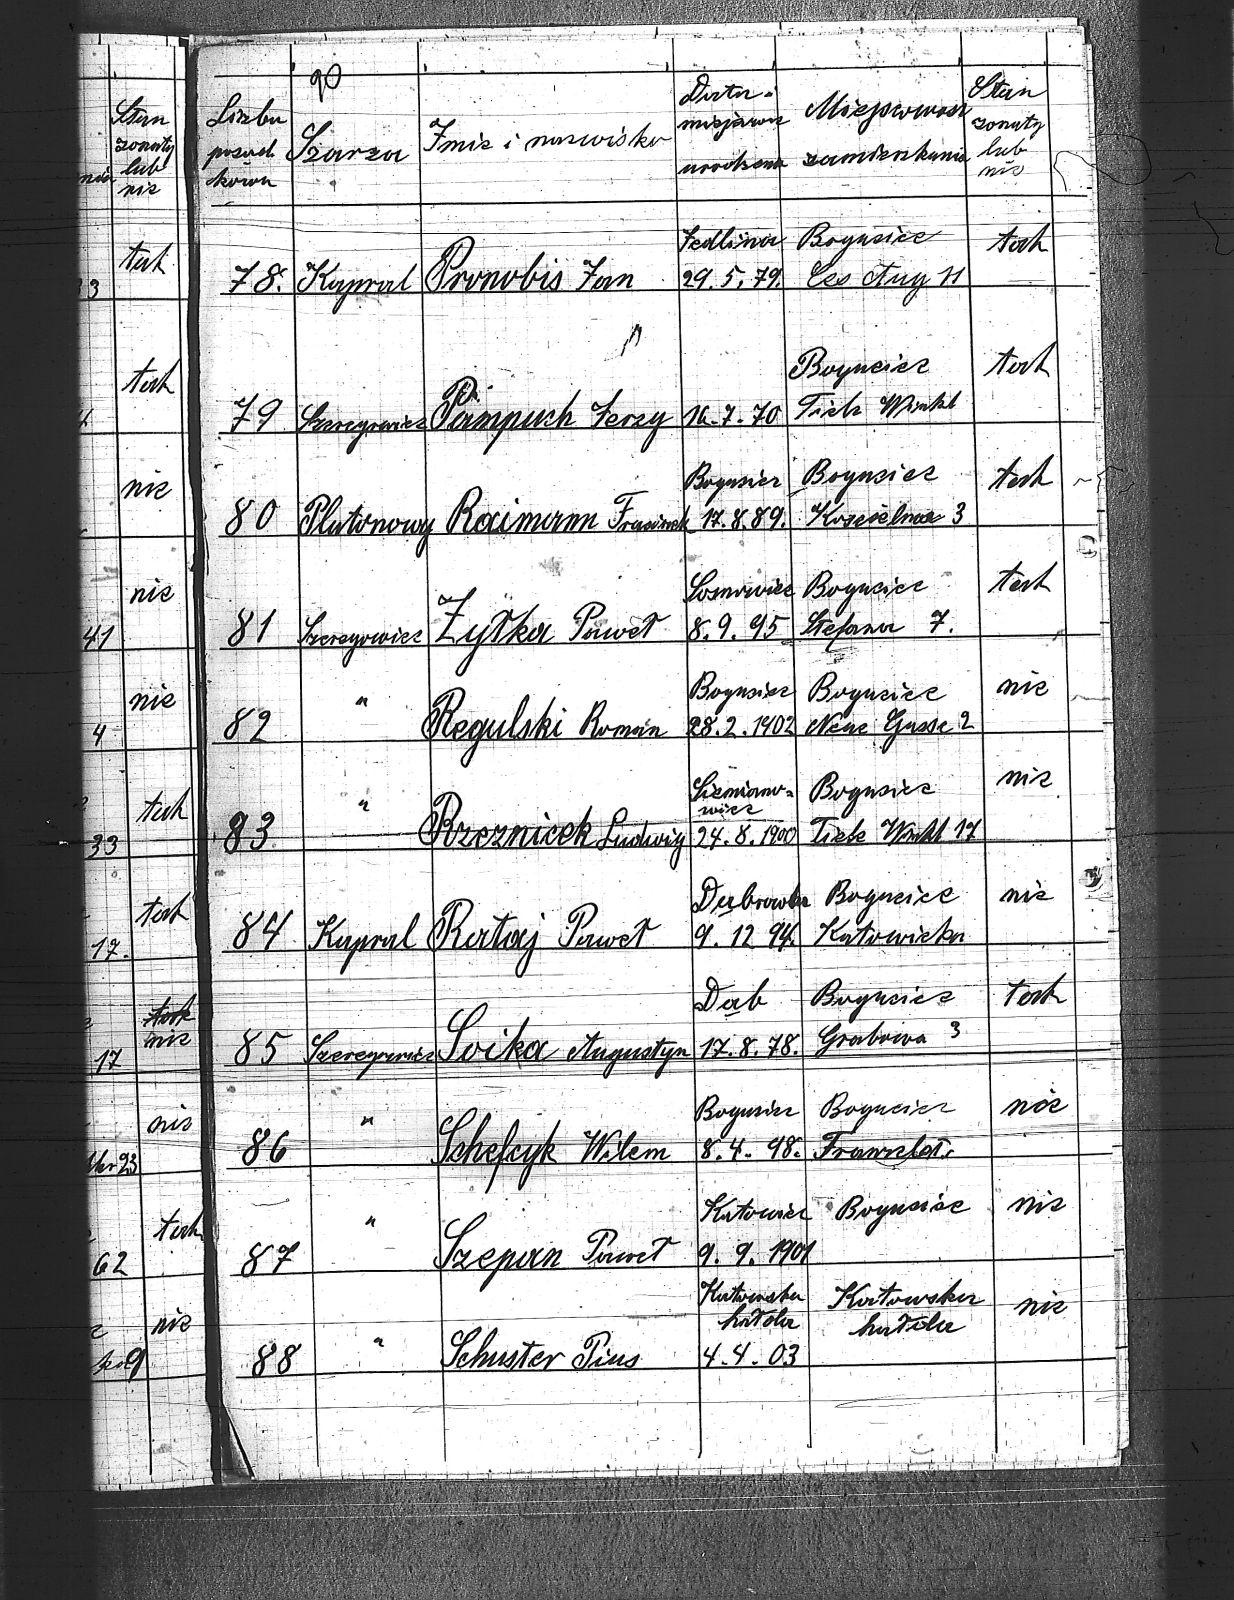 90
Stan żonaty lub nie
Liczba porządkowa Szarża Imię i nazwisko Data miejsce urodzenia Miejscowość zamieszkania Stan zonaty lub nie
tak
Jedlina Bogucice tak
33
78. Kapral Pronobis Jan 29.5.79. Ces Aug 11
tak
Bogucice tak
79 Szeregowiec Pampuch Jerzy 16.7.70 Tiele Winkl
nie
Bogucice Bogucice tak
80 Plutonowy Raimann 17.8.89. Koscielna 3
nie
Sosnowiec Bogucice tak
41
81 Szeregowiec Zytka Paweł 8.9.95 Stefana 7.
nie
" Bogucice Bogucice nie
4
82 Regulski Roman 28.2.1902 Neue Gasse 2
tak
" Siemianowice Bogucice nie
33
83 Rzeznicek Ludwig 24.8.1900 Tiele Winkl 17
tak
Dąbrowka Bogucice nie
17.
84 Kapral Rataj Paweł 9.12 94. Katowicka
tak
nie
Dąb Bogucice tak
17
85 Szeregowiec Soika Augustyn 17.8.78. Grabowa 3
nie
" Bogucice Bogucice nie
23
86 Schefcyk Wilem 8.4.98.
tak
" Katowice Bogucice nie
62
87 Szepan Paweł 9.9.1901
nie
" Katowska hałda Katowska hałda nie
9
88 Schuster Pius 4.4.03